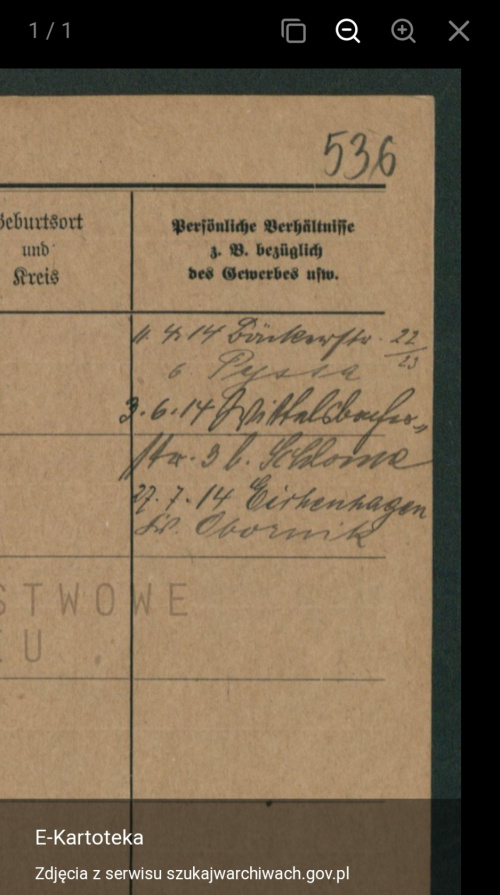 1 / 1
536
Geburtsort
und
Kreis
Persönliche Verhältnisse
z. B. bezüglich
des Gewerbes usw.
11. 4. 14 Bäckerstr. 22/23
b. Pyssa
3. 6. 14 Wittelsbacher-
str. 3 b. Schlome
27. 7. 14 Eichenhagen
Kr. Obornik
STWOWE
U
E-Kartoteka
Zdjęcia z serwisu szukajwarchiwach.gov.pl